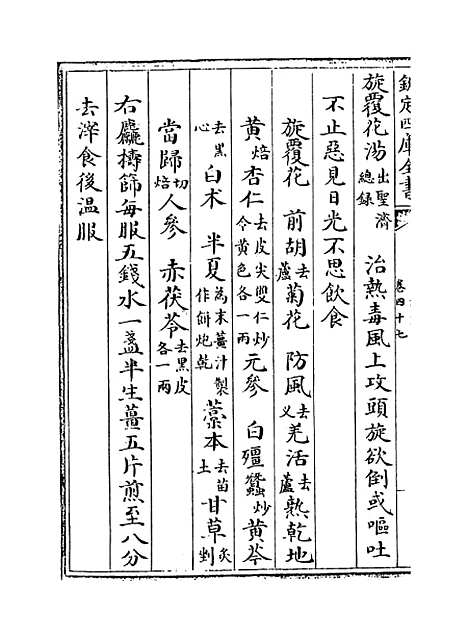 欽定四庫全書
卷四十七
旋覆花湯出聖濟總録 治熱毒風上攻頭旋欲倒或嘔吐
不止惡見日光不思飲食
旋覆花 前胡去蘆 菊花 防風去义 羌活去蘆 熟乾地
黄焙 杏仁去皮尖雙仁炒令黄色各一兩 元參 白殭蠶炒 黄芩
去黑心 白术 半夏為末薑汁製作餅炮乾 藁本去苗土 甘草炙剉
當歸切焙 人參 赤茯苓去黑皮各一兩
右麤擣篩每服五錢水一盞半生薑五片煎至八分
去滓食後温服